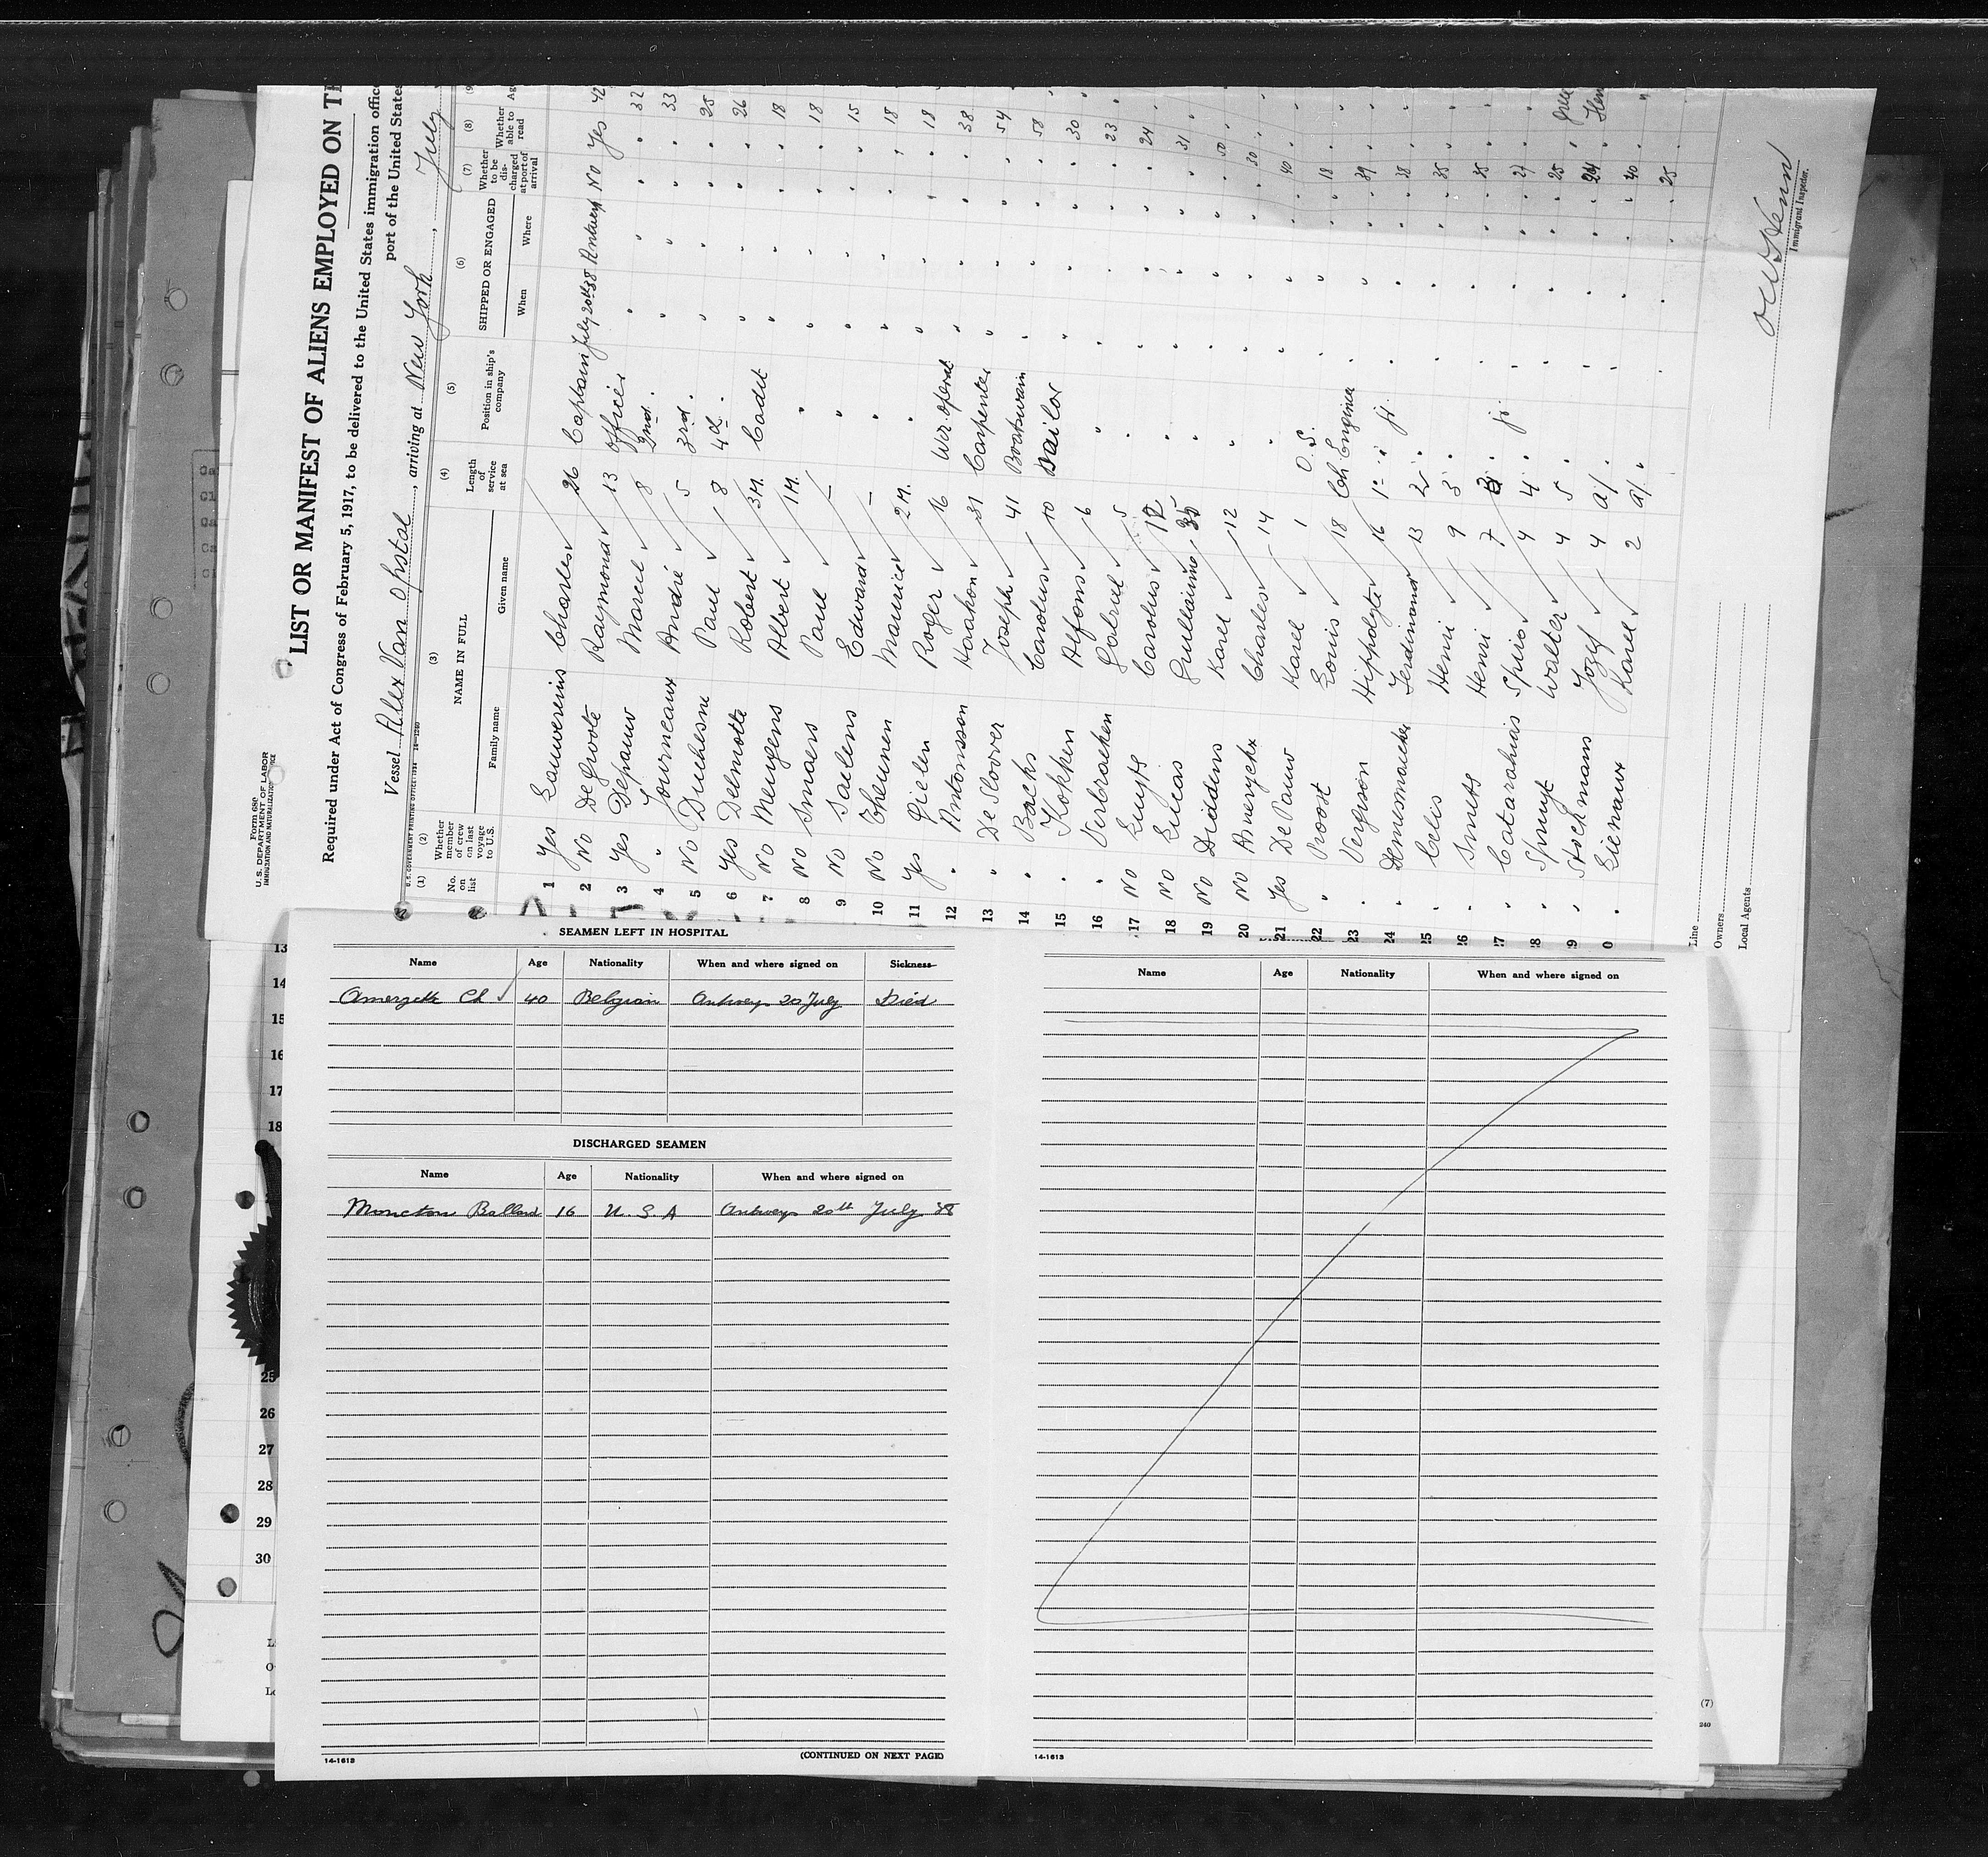 Form 680
U. S. DEPARTMENT OF LABOR
IMMIGRATION AND NATURALIZATION
LIST OR MANIFEST OF ALIENS EMPLOYED ON
Required under Act of Congress of February 5, 1917, to be delivered to the United States immigration
port of the United States
Vessel Alex Van Opstal, arriving at New York, July
U. S. GOVERNMENT PRINTING OFFICE: 1934 14-1240
(1) (2) (3) (4) (5) (6) (7) (8)
No. on list
Whether member of crew on last voyage to U. S.
NAME IN FULL
Family name Given name
Length of service at sea
Position in ship's company
SHIPPED OR ENGAGED
When Where
Whether to be discharged at port of arrival
Whether able to read
1 Yes Lauwereins Charles 26 Captain July 20th 38 Antwerp No Yes 42
2 No De Groote Raymond 13 Officer " " " " 32
3 Yes Depauw Marcel 8 2nd " " " " " 33
4 " Journeaux André 5 3rd " " " " " 25
5 No Duchesne Paul 8 4th " " " " " 26
6 Yes Delmotte Robert 3M. Cadet " " " " 18
7 No Meugens Albert 1M. " " " " " 18
8 No Smaers Paul - " " " " " 15
9 No Saelens Edward - " " " " " 18
10 No Theunen Maurice 2M. " " " " " 18
11 Yes Gielen Roger 16 Wir. operat " " " " 38
12 " Antonsson Haakon 31 Carpenter " " " " 54
13 " De Slover Joseph 41 Boatswain " " " " 58
14 " Backs Carolus 10 Sailor " " " " 30
15 " Kokken Alfons 6 " " " " " 23
16 " Verbraken Gabriel 5 " " " " " 24
17 No Luyts Carolus 12 " " " " " 31
18 No Lucas Guillaume 35 " " " " " 50
19 No Diddens Karel 12 " " " " " 30
20 No Ameryckx Charles 14 " " " " " 40
21 Yes De Pauw Karel 1 O. S. " " " " 18
22 " Proost Louis 18 Ch. Engineer " " " " 39
23 " Vergison Hippolyte 16 1° " " " " " 38
24 " Demesmaeker Ferdinand 13 2° " " " " " 35
25 " Celis Henri 9 3° " " " " " 35
26 " Smets Henri 7 " " " " " 27
27 " Catarahias Spiro 4 4° " " " " " 25
28 " Spruyt Walter 4 5 " " " " " 24
29 " Stockmans Jozef 4 a/. " " " " 40
30 " Lienaux Karel 2 a/. " " " " 25
Line
Owners
Local Agents
Immigrant Inspector.
SEAMEN LEFT IN HOSPITAL
Name Age Nationality When and where signed on Sickness
Ch 40 Belgian Antwerp 20 July Died
DISCHARGED SEAMEN
Name Age Nationality When and where signed on
Moncton Ballard 16 U. S. A Antwerp 20th July '38
14-1613 (CONTINUED ON NEXT PAGE)
Name Age Nationality When and where signed on
14-1613
13
14
15
16
17
18
25
26
27
28
29
30
(7)